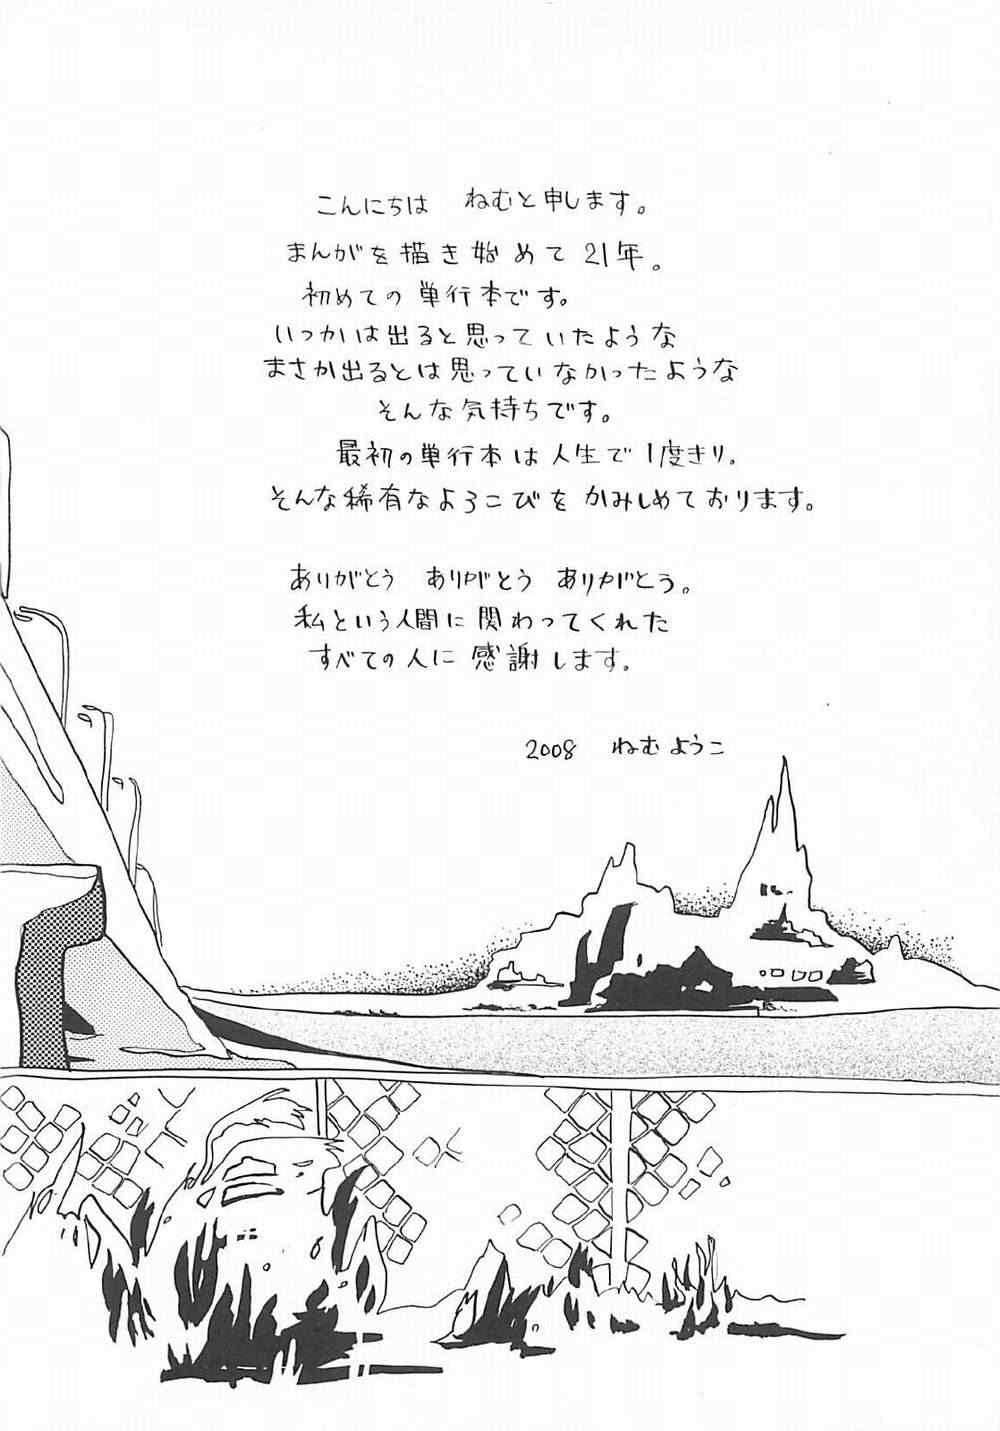 こんにちは ねむと申します。
まんがを描き始めて21年。
初めての単行本です。
いつかは出ると思っていたような
まさか出るとは思っていなかったような
そんな気持ちです。
最初の単行本は人生で1度きり。
そんな稀有なよろこびをかみしめております。
ありがとう ありがとう ありがとう。
私という人間に関わってくれた
すべての人に感謝します。
2008 ねむようこ